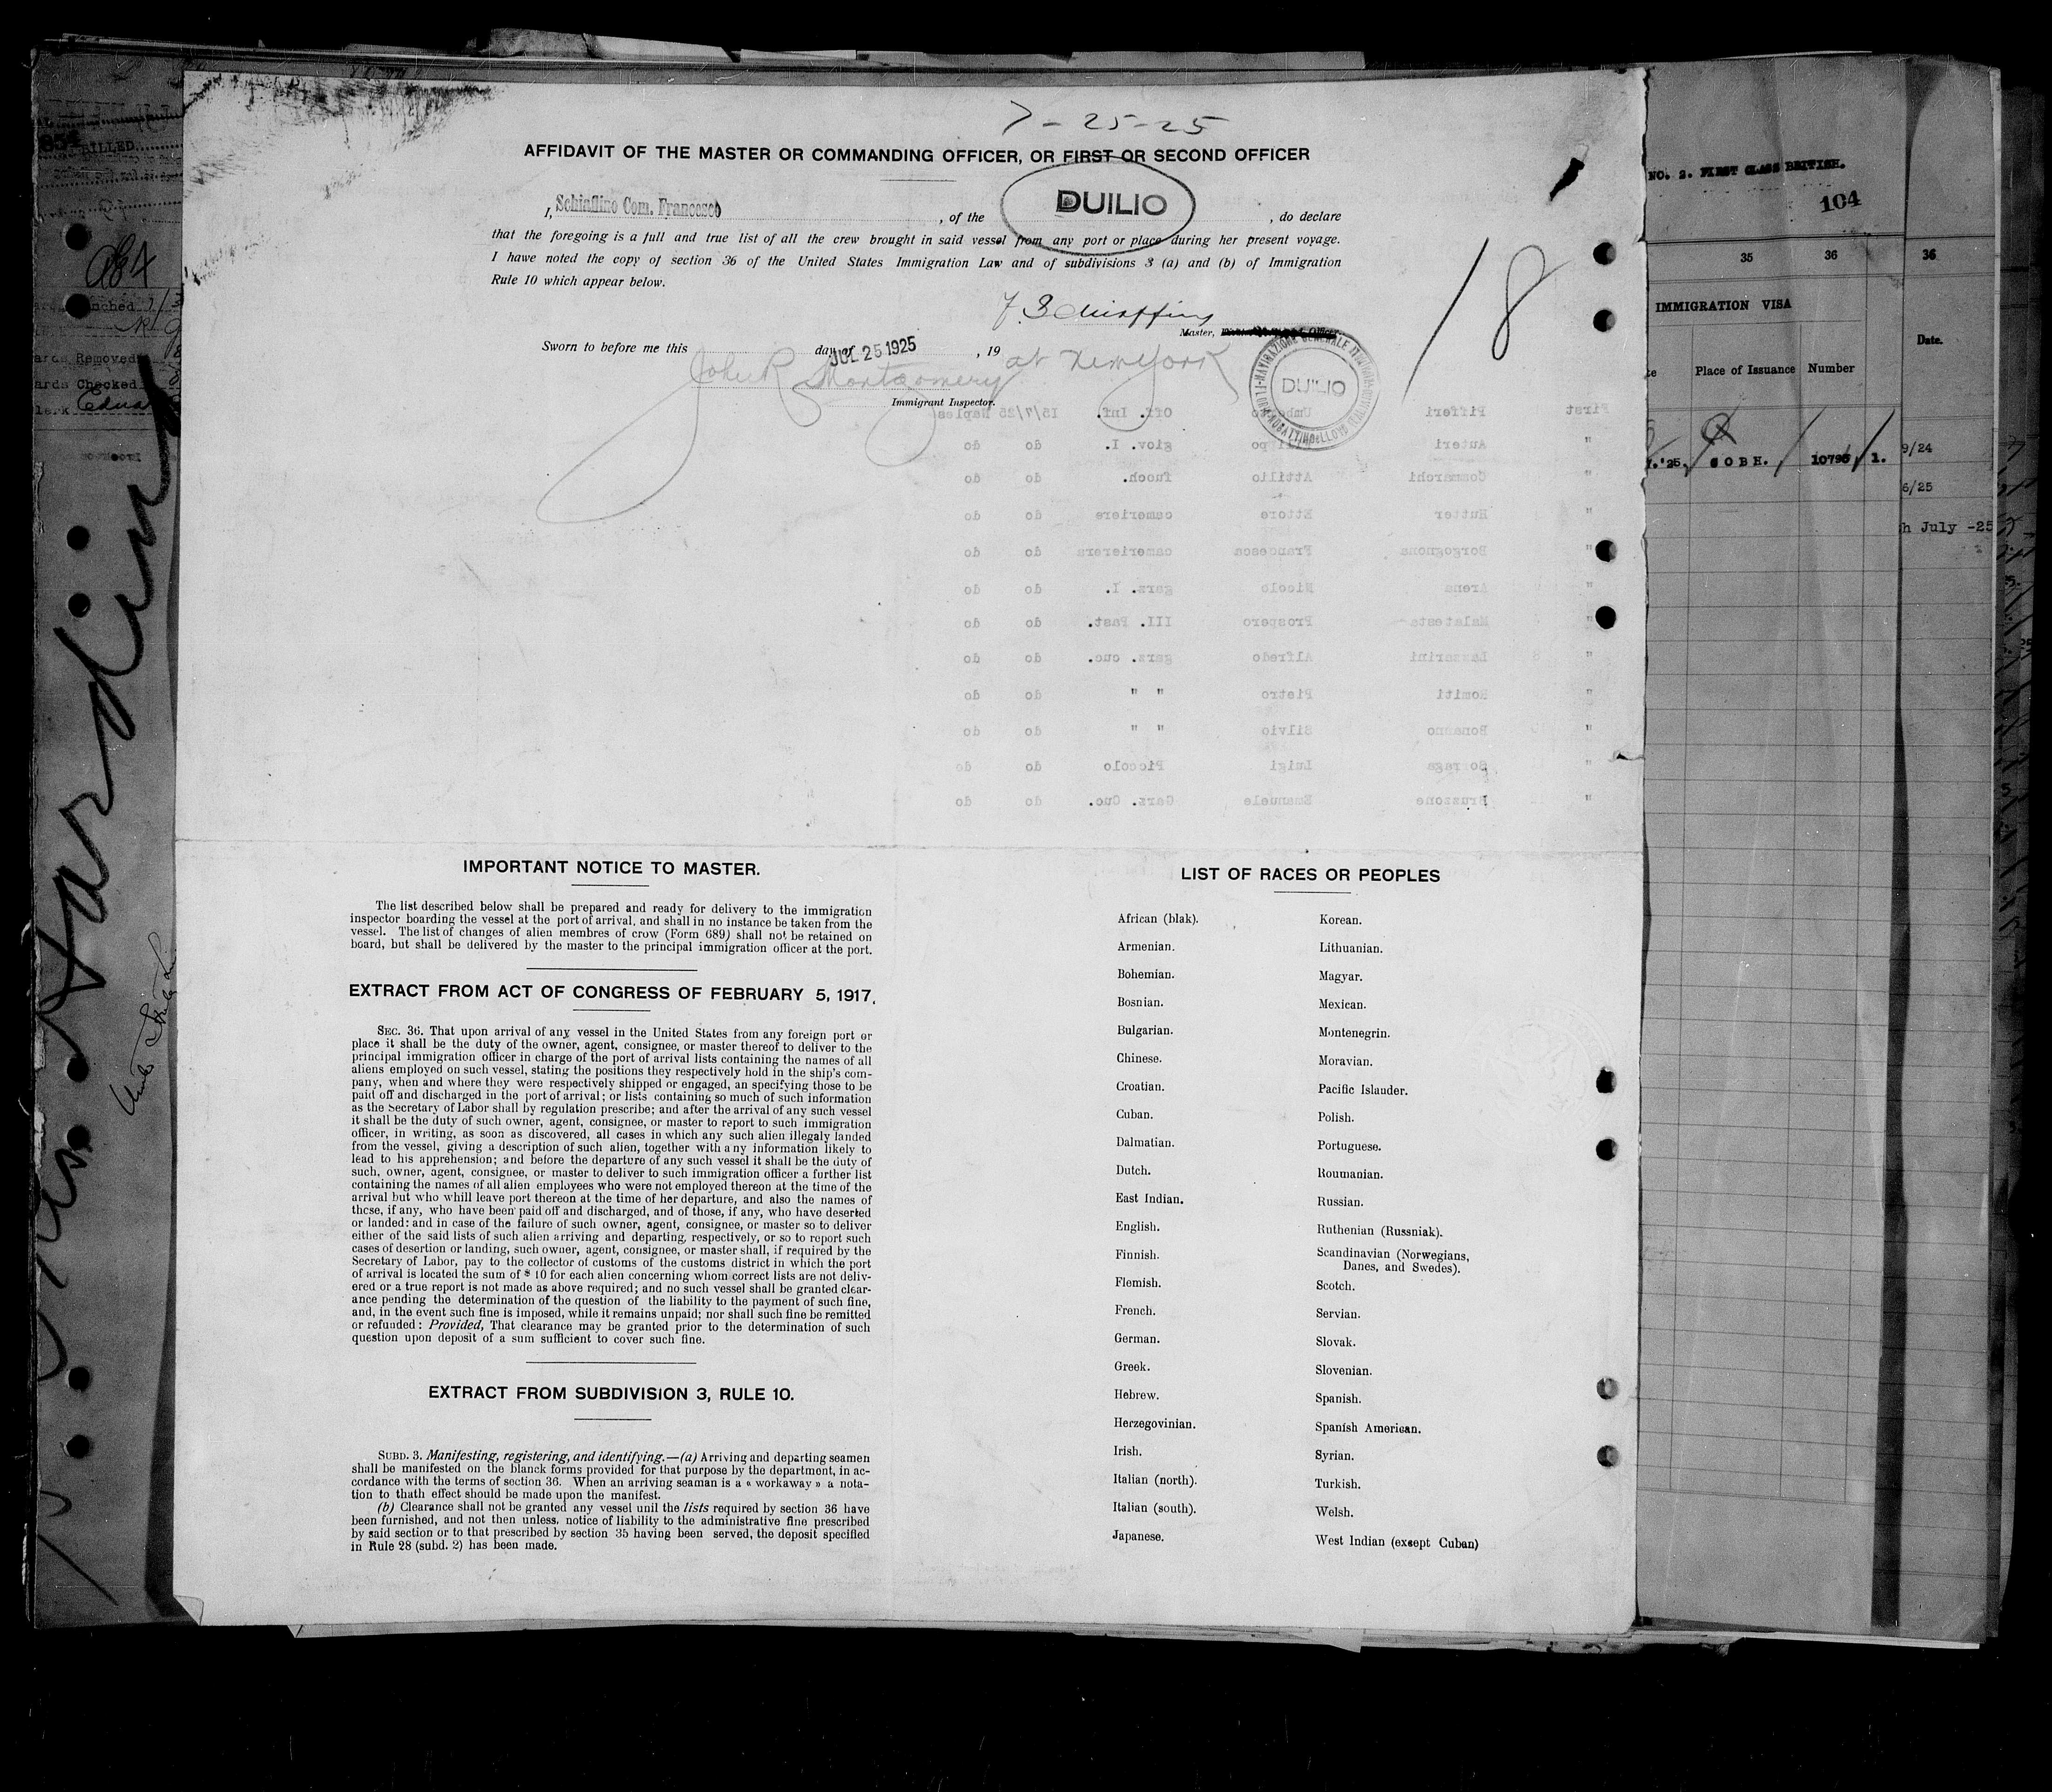 7-25-25
AFFIDAVIT OF THE MASTER OR COMMANDING OFFICER, OR FIRST OR SECOND OFFICER
I, Schiaffino Com. Francesco, of the DUILIO, do declare
that the foregoing is a full and true list of all the crew brought in said vessel from any port or place during her present voyage.
I hawe noted the copy of section 36 of the United States Immigration Law and of subdivisions 3 (a) and (b) of Immigration
Rule 10 which appear below.
18
F. Schiaffino
Master,
Sworn to before me this day of JUL 25 1925, 19 at New York
John R Montgomery
Immigrant Inspector.
DUILIO
First Pifferi Off. Inf. 15/7/25 Naples
" Auteri giov. I. do do
" Commarchi Attilio fuoch. do do
" Hutter Ettore cameriere do do
" Borgognona Francesca cameriera do do
" Arena Nicolo garz. I. do do
" Malatesta Prospero III. Past. do do
" Lazzarini Alfredo garz. cuc. do do
" Romiti Pietro " " do do
" Bonanno Silvio " " do do
" Luigi Piccolo do do
" Bruzzone Emanuele Garz. Cuc. do do
IMPORTANT NOTICE TO MASTER.
The list described below shall be prepared and ready for delivery to the immigration
inspector boarding the vessel at the port of arrival, and shall in no instance be taken from the
vessel. The list of changes of alien membres of crow (Form 689) shall not be retained on
board, but shall be delivered by the master to the principal immigration officer at the port.
EXTRACT FROM ACT OF CONGRESS OF FEBRUARY 5, 1917.
SEC. 36. That upon arrival of any vessel in the United States from any foreign port or
place it shall be the duty of the owner, agent, consignee, or master thereof to deliver to the
principal immigration officer in charge of the port of arrival lists containing the names of all
aliens employed on such vessel, stating the positions they respectively hold in the ship's com-
pany, when and where they were respectively shipped or engaged, an specifying those to be
paid off and discharged in the port of arrival; or lists containing so much of such information
as the Secretary of Labor shall by regulation prescribe; and after the arrival of any such vessel
it shall be the duty of such owner, agent, consignee, or master to report to such immigration
officer, in writing, as soon as discovered, all cases in which any such alien illegally landed
from the vessel, giving a description of such alien, together with any information likely to
lead to his apprehension; and before the departure of any such vessel it shall be the duty of
such, owner, agent, consignee, or master to deliver to such immigration officer a further list
containing the names of all alien employees who were not employed thereon at the time of the
arrival but who whill leave port thereon at the time of her departure, and also the names of
those, if any, who have been paid off and discharged, and of those, if any, who have deserted
or landed: and in case of the failure of such owner, agent, consignee, or master so to deliver
either of the said lists of such alien arriving and departing, respectively, or so to report such
cases of desertion or landing, such owner, agent, consignee, or master shall, if required by the
Secretary of Labor, pay to the collector of customs of the customs district in which the port
of arrival is located the sum of $ 10 for each alien concerning whom correct lists are not deliv-
ered or a true report is not made as above required; and no such vessel shall be granted clear-
ance pending the determination of the question of the liability to the payment of such fine,
and, in the event such fine is imposed, while it remains unpaid; nor shall such fine be remitted
or refunded: Provided, That clearance may be granted prior to the determination of such
question upon deposit of a sum sufficient to cover such fine.
EXTRACT FROM SUBDIVISION 3, RULE 10.
SUBD. 3. Manifesting, registering, and identifying.—(a) Arriving and departing seamen
shall be manifested on the blanck forms provided for that purpose by the department, in ac-
cordance with the terms of section 36. When an arriving seaman is a « workaway » a nota-
tion to thath effect should be made upon the manifest.
(b) Clearance shall not be granted any vessel unil the lists required by section 36 have
been furnished, and not then unless, notice of liability to the administrative fine prescribed
by said section or to that prescribed by section 35 having been served, the deposit specified
in Rule 28 (subd. 2) has been made.
LIST OF RACES OR PEOPLES
African (blak).
Armenian.
Bohemian.
Bosnian.
Bulgarian.
Chinese.
Croatian.
Cuban.
Dalmatian.
Dutch.
East Indian.
English.
Finnish.
Flemish.
French.
German.
Greek.
Hebrew.
Herzegovinian.
Irish.
Italian (north).
Italian (south).
Japanese.
Korean.
Lithuanian.
Magyar.
Mexican.
Montenegrin.
Moravian.
Pacific Islander.
Polish.
Portuguese.
Roumanian.
Russian.
Ruthenian (Russniak).
Scandinavian (Norwegians,
Danes, and Swedes).
Scotch.
Servian.
Slovak.
Slovenian.
Spanish.
Spanish American.
Syrian.
Turkish.
Welsh.
West Indian (except Cuban)
NO. 2. FIRST CLASS BRITISH.
104
35 36 36
IMMIGRATION VISA
Place of Issuance Number Date.
9/24
'25. COBH. 1.
6/25
July -25
BILLED
Removed
Checked